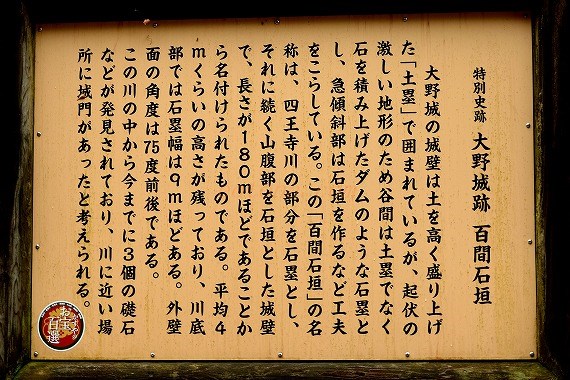 特別史跡 大野城跡 百間石垣
大野城の城壁は土を高く盛り上げ
た「土塁」で囲まれているが、起伏の
激しい地形のため谷間は土塁でなく
石を積み上げたダムのような石塁と
し、急傾斜部は石垣を作るなど工夫
をこらしている。この「百間石垣」の名
称は、四王寺川の部分を石塁とし、
それに続く山腹部を石垣とした城壁
で、長さが180mほどであることか
ら名付けられたものである。平均4
mくらいの高さが残っており、川底
部では石塁幅は9mほどある。外壁
面の角度は75度前後である。
この川の中から今までに3個の礎石
などが発見されており、川に近い場
所に城門があったと考えられる。
百選